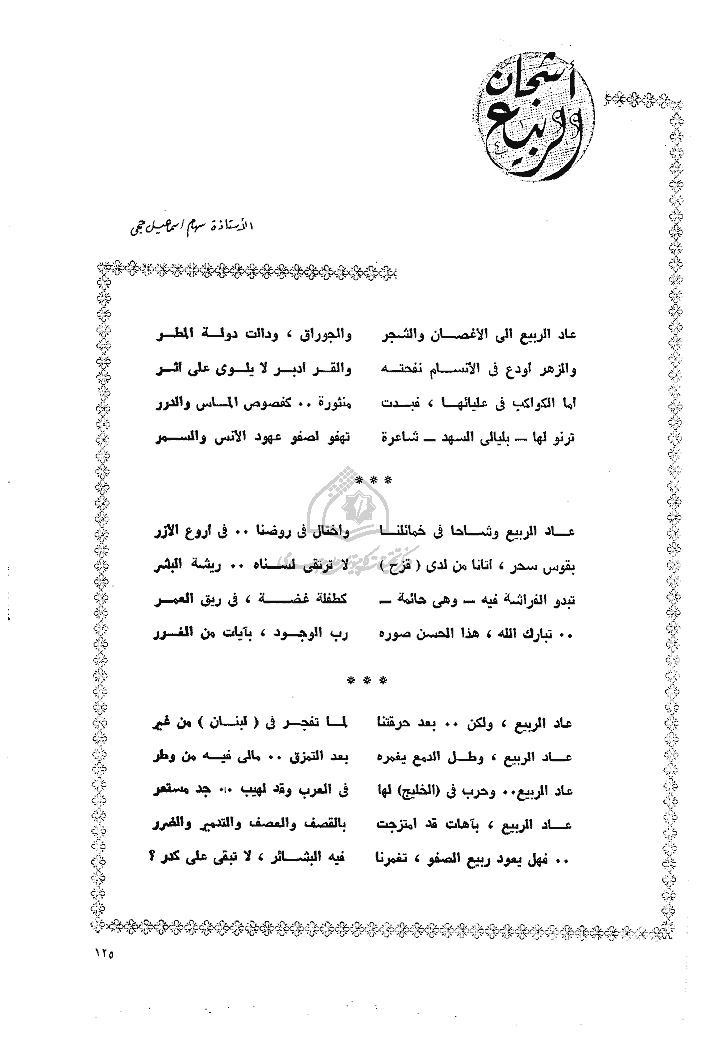 أشجان
الربيع
الأستاذة سهام اسماعيل حجى
عاد الربيع الى الاغصان والشجر والجوراق ، ودالت دولة المطر
والزهر أودع فى الأنسام نفحته والقر أدبر لا يلوى على أثر
أما الكواكب فى عليائها ، فبدت منثورة ٠٠ كفصوص الماس والدرر
ترنو لها ــ بليالى السهد ــ شاعرة تهفو لصفو عهود الأنس والسمر
* * *
عاد الربيع وشاحا فى خمائلنا وأختال فى روضنا ٠٠ فى أروع الأزر
بقوس سحر ، أتانا من لدى ( قزح ) لا ترتقى لسناه ٠٠ ريشة البشر
تبدو الفراشة فيه ــ وهى حائمة ــ كطفلة غضة ، فى ريق العمر
٠٠ تبارك الله ، هذا الحسن صوره رب الوجود ، بآيات من الغرر
* * *
عاد الربيع ، ولكن ٠٠ بعد حرقتنا لما تفجر فى ( لبنان ) من غير
عاد الربيع ، وطل الدمع يغمره بعد التمزق ٠٠ مالى فيه من وطر
عاد الربيع٠٠ وحرب فى (الخليج) لها فى العرب وقد لهيب ٠٠ جد مستعر
عاد الربيع ، بآهات قد امتزجت بالقصف والعصف والتدمير والضرر
٠٠ فهل يعود ربيع الصفو ، تغمرنا فيه البشائر ، لا تبقى على كدر ؟
١٢٥